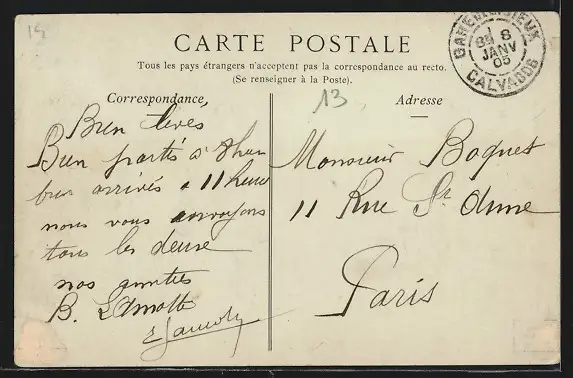 15
CARTE POSTALE
Tous les pays étrangers n'acceptent pas la correspondance au recto.
(Se renseigner à la Poste).
Correspondance
13
Adresse
GARE DE LISIEUX
8
JANV
05
CALVADOS
Bien levés
Bien partis
bien arrivés a 11 heure
nous vous envoyons
tous les deux
nos amitiés
B. Lamotte
Monsieur Boquet
11 Rue St Anne
Paris